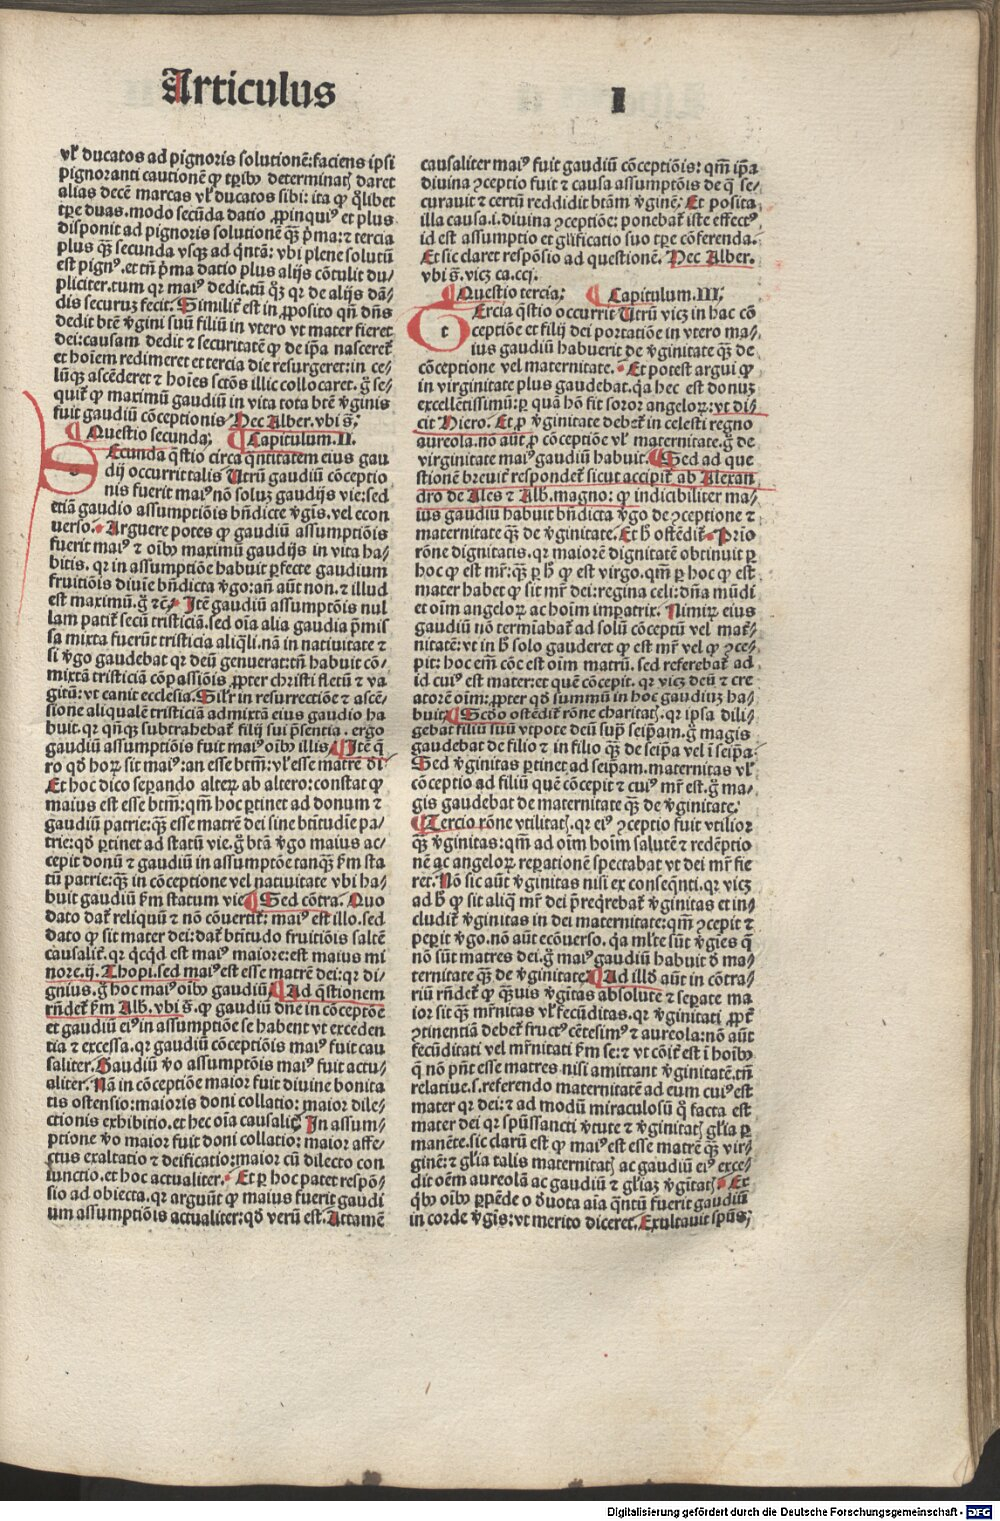 Articulus
I
vl' ducatos ad pignoris solutionē:faciens ipsi
pignoranti cautionē ꝙ tꝑibꝰ determinatꝭ daret
alias decē marcas vl' ducatos sibi: ita ꝙ q̄libet
tꝑe duas.modo secūda datio ꝓpinquiꝰ et plus
disponit ad pignoris solutionē q̄ꝫ p̄ma:⁊ tercia
plus q̄ꝫ secunda vsqꝫ ad q̄ntā: vbi plene solutū
est pignꝰ.et tn̄ p̄ma datio plus alijs cōtulit du⸗
pliciter.tum qꝛ maiꝰ dedit.tū q̄ꝫ qꝛ de alijs dā⸗
dis securuꝫ fecit.Similiē est in ꝓposito qn̄ dn̄s
dedit btē v̄gini suū filiū in vtero vt mater fieret
dei:causam dedit ⁊ securitatē ꝙ de ip̄a nasceret̄
et hoīem redimeret et tercia die resurgeret:in ce⸗
lūqꝫ ascēderet ⁊ hoīes sctōs illic collocaret.g̊ se⸗
quit̄ ꝙ maximū gaudiū in vita tota btē v̄ginis
fuit gaudiū cōceptionis Hec Alber.vbi s̄.
¶ Questio secunda; ¶ Capitulum.II.
s
Ecunda q̄stio circa q̄ntitatem eius gau
dij occurrit talis Utrū gaudiū cōceptio
nis fuerit maiꝰ nō soluꝫ gaudijs vie:sed
etiā gaudio assumptiōis bn̄dicte v̄gis.vel econ
uerso. Arguere potes ꝙ gaudiū assumptiōis
fuerit maiꝰ ⁊ oīb'ꝰ maximū gaudijs in vita ha⸗
bitis.qꝛ in assumptiōe habuit ꝑfecte gaudium
fruitiōis diuīe bn̄dicta v̄go:an̄ aūt non.⁊ illud
est maximū.g̊ ⁊c̄. Itē gaudiū assumptōis nul
lam patit̄ secū tristiciā.sed oīa alia gaudia p̄mis
sa mixta fuerūt tristicia aliq̄li.nā in natiuitate ⁊
si v̄go gaudebat qꝛ deū genuerat:tn̄ habuit cō⸗
mixtā tristiciā cōpassiōis ꝓpter christi fletū ⁊ va
gitū:vt canit ecclesia.Silr̄ in resurrectiōe ⁊ ascē⸗
sione aliqualē tristiciā admixtā eius gaudio ha
buit.qꝛ qn̄qꝫ subtrahebat̄ filij sui p̄sentia.ergo
gaudiū assumptiōis fuit maiꝰ oībꝰ illis.¶Itē q̄
ro qd̄ hoꝝ sit maiꝰ:an esse btm̄:vl' esse matrē d̄i
Et hoc dico seꝑando alteꝝ ab altero:constat ꝙ
maius est esse btm̄:qm̄ hoc ꝑtinet ad donum ⁊
gaudiū patrie:q̄ꝫ esse matrē dei sine btitudīe pa⸗
trie:qd̄ ꝑtinet ad statū vie.g̊ btā v̄go maius ac⸗
cepit donū ⁊ gaudiū in assumptōe tanq̄ꝫ ẜm sta
tū patrie:q̄ꝫ in cōceptione vel natiuitate vbi ha⸗
buit gaudiū ẜm statum vie ¶Sed cōtra. Quo
dato dat̄ reliquū ⁊ nō cōuertit̄: maiꝰ est illo.sed
dato ꝙ sit mater dei:dat̄ btitudo fruitiōis saltē
causalit̄.qꝛ q̄cq̄d est maiꝰ maiore:est maius mi
nore.ij.Thopi.sed maiꝰ est esse matrē dei:qꝛ di⸗
gnius.g̊ hoc maiꝰ oībꝰ gaudiū ¶Ad q̄stionem
rn̄det̄ ẜm Alb.vbi s̄.ꝙ gaudiū dn̄e in cōceptōe
et gaudiū eiꝰ in assumptiōe se habent vt exceden
tia ⁊ excessa.qꝛ gaudiū cōceptiōis maiꝰ fuit cau
saliter.Gaudiū v̄o assumptōis maiꝰ fuit actu⸗
aliter.Nā in cōceptiōe maior fuit diuine bonita
tis ostensio:maioris doni collatio: maior dile⸗
ctionis exhibitio.et hec oīa causalit̄.In assum⸗
ptione v̄o maior fuit doni collatio: maior affe⸗
ctus exaltatio ⁊ deificatio:maior cū dilecto con
iunctio.et hoc actualiter. Et ꝑ hoc patet respō⸗
sio ad obiecta.qꝛ arguūt ꝙ maius fuerit gaudi
um assumptiōis actualiter:qd̄ verū est.Attamē
causaliter maiꝰ fuit gaudiū cōceptiōis: qm̄ ip̄a
diuina ꝯceptio fuit ⁊ causa assumptōis de q̄ se⸗
curauit ⁊ certū reddidit btām v̄ginē. Et posita
illa causa.i.diuina ꝯceptiōe: ponebat̄ iste effectꝰ
id est assumptio et gl'ificatio suo tꝑe cōferenda.
Et sic claret respōsio ad questionē. Hec Alber.
vbi s̄.vicꝫ ca.ccj.
¶ Questio tercia; ¶ Capitulum.III;
t
Ercia q̄stio occurrit Utrū vicꝫ in hac cō
ceptiōe et filij dei portatiōe in vtero ma⸗
ius gaudiū habuerit de v̄ginitate q̄ꝫ de
cōceptione vel maternitate. Et potest argui ꝙ
in virginitate plus gaudebat.q̇a hec est donuꝫ
excellētissimū:ꝑ quā hō fit soror angeloꝝ:vt di⸗
cit Hiero. Et ꝓ v̄ginitate debet̄ in celesti regno
aureola.nō aūt ꝓ cōceptiōe vl' maternitate.g̊ de
virginitate maiꝰ gaudiū habuit.¶Sed ad que
stionē breuit̄ respondet̄ sicut accipit̄ ab Alexan
dro de Ales ⁊ Alb.magno: ꝙ indicibiliter ma⸗
ius gaudiū habuit bn̄dicta v̄go de ꝯceptione ⁊
maternitate q̄ꝫ de v̄ginitate.Et h̄ ostēdit̄. Prīo
rōne dignitatis.qꝛ maiorē dignitatē obtinuit ꝑ
hoc ꝙ est mr̄:q̄ꝫ ꝑ h̄ ꝙ est virgo.qm̄ ꝑ hoc ꝙ est
mater habet ꝙ sit mr̄ dei:regina celi:dn̄a mūdi
et oīm angeloꝝ ac hoīm impatrix. Nimiꝝ eius
gaudiū nō termīabat̄ ad solū cōceptū vel mat̄⸗
nitatē:vt in h̄ solo gauderet ꝙ est mr̄ vel ꝙ ꝯce⸗
pit: hoc em̄ cōe est oīm matrū. sed referebat̄ ad
id cuiꝰ est mater:et quē cōcepit.qꝛ vicꝫ deū ⁊ cre
atorē oīm:ꝓpter qd̄ summū in hoc gaudiuꝫ ha⸗
buit.¶Scd̄o ostēdit̄ rōne charitatꝭ.qꝛ ipsa dili⸗
gebat filiū suū vtpote deū sup̄ seip̄am.g̊ magis
gaudebat de filio ⁊ in filio q̄ꝫ de seip̄a vel ī seip̄a.
Sed v̄ginitas ꝑtinet ad seip̄am.maternitas vl'
cōceptio ad filiū quē cōcepit ⁊ cuiꝰ mr̄ est.g̊ ma⸗
gis gaudebat de maternitate q̄ꝫ de v̄ginitate.
¶Tercio rōne vtilitatꝭ.qꝛ eiꝰ ꝯceptio fuit vtilior
q̄ꝫ v̄ginitas:qm̄ ad oīm hoīm salutē ⁊ redēptio
nē ac angeloꝝ reꝑationē spectabat vt dei mr̄ fie
ret.Nō sic aūt v̄ginitas nisi ex conseq̄nti.qꝛ vicꝫ
ad h̄ ꝙ sit aliq̄ mr̄ dei p̄req̇rebat̄ v̄ginitas et in⸗
cludit̄ v̄ginitas in dei maternitate:qm̄ ꝯcepit ⁊
peꝑit v̄go.nō aūt ecōuerso.q̇a ml'te sūt v̄gies q̄
nō sūt matres dei.g̊ maiꝰ gaudiū habuit d̄ ma⸗
ternitate q̄ꝫ de v̄ginitate ¶Ad ill'd aūt in cōtra⸗
riū rn̄det̄ ꝙ q̄ꝫuis v̄gītas absolute ⁊ seꝑate ma
ior sit q̄ꝫ mr̄nitas vl' fecūditas.qꝛ v̄ginitati ꝓpt̄
ꝯtinentiā debet̄ fructꝰ cētesimꝰ ⁊ aureola:nō aūt
fecūditati vel mr̄nitati ẜm se:⁊ vt cōit̄ est ī hoībꝰ
q̄ nō pn̄t esse matres nisi amittant v̄ginitatē.tn̄
relatiue.s.referendo maternitatē ad eum cuiꝰ est
mater qꝛ dei:⁊ ad modū miraculosū q̊ facta est
mater dei qꝛ spūssancti v̄tute ⁊ v̄ginitatꝭ gl'ia ꝑ
manēte.sic clarū est ꝙ maiꝰ est esse matrē q̄ꝫ vir⸗
ginē:⁊ gl'ia talis maternitatꝭ ac gaudiū eiꝰ exce⸗
dit oēm aureolā ac gaudiū ⁊ gl'iaꝫ v̄gītatꝭ. Ex
q̇bꝰ oībꝰ ꝑpēde o d̄uota aīa q̄ntū fuerit gaudiū
in corde v̄gis:vt merito diceret.Exultauit spūs;
Digitalisierung gefördert durch die Deutsche Forschungsgemeinschaft - DFG